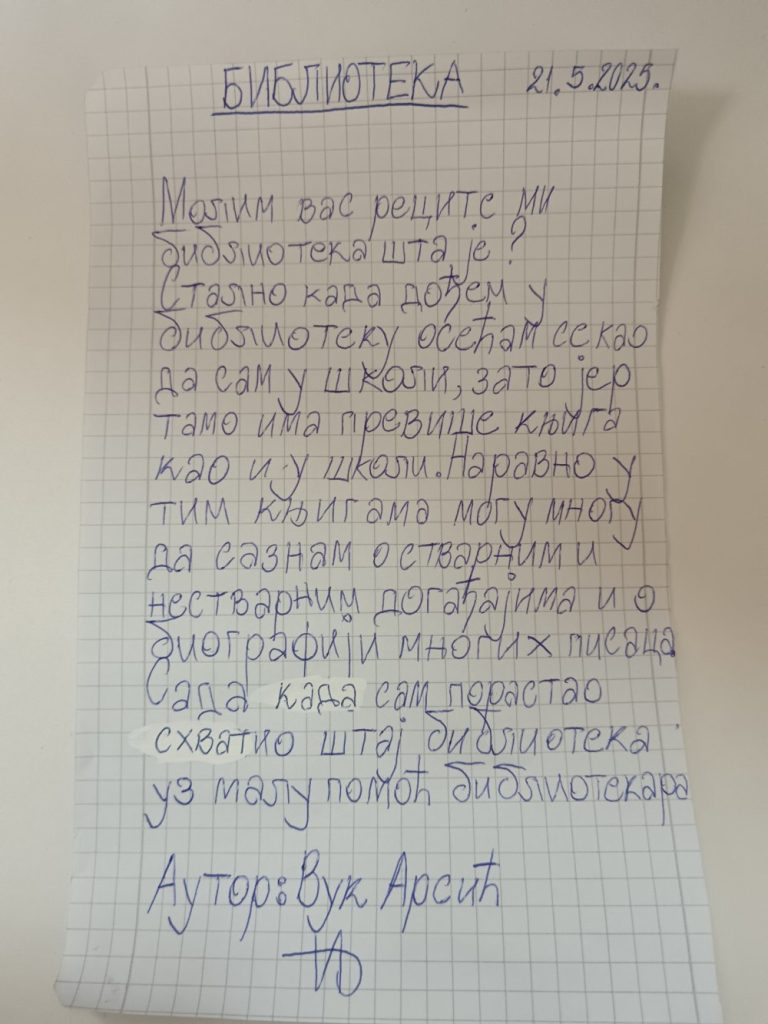 БИБЛИОТЕКА 21.5.2025.
Молим вас реците ми
библиотека шта је?
Стално када дођем у
библиотеку осећам се као
да сам у школи, зато јер
тамо има превише књига
као и у школи. Наравно у
тим књигама могу многу
да сазнам о стварним и
нестварним догађајима и о
биографији многих писаца
Сада када сам порастао
схватио штај библиотека
уз малу помоћ библиотекара
Аутор: Вук Арсић